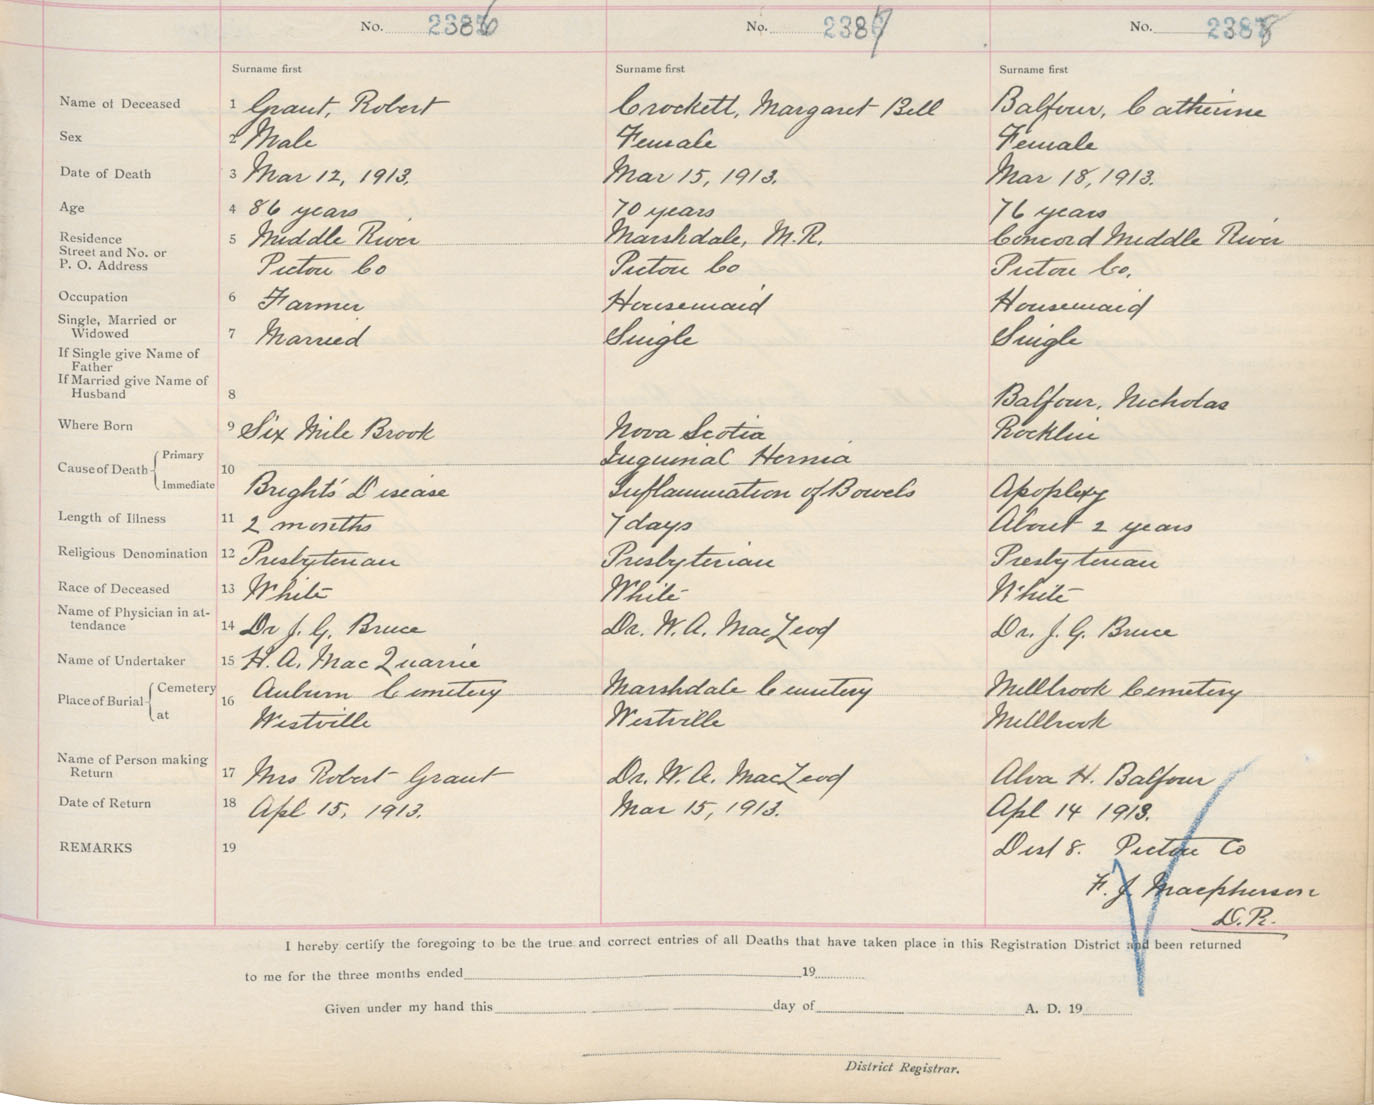 No. 2386 No. 2387 No. 2388
Surname first Surname first Surname first
Name of Deceased 1 Grant, Robert Crockett, Margaret Bell Balfour, Catherine
Sex 2 Male Female Female
Date of Death 3 Mar 12, 1913. Mar 15, 1913. Mar 18, 1913.
Age 4 86 years 70 years 76 years
Residence 5 Middle River Marshdale, M.R. Concord Middle River
Street and No. or
P. O. Address Pictou Co Pictou Co Pictou Co.
Occupation 6 Farmer Housemaid Housemaid
Single, Married or
Widowed 7 Married Single Single
If Single give Name of
Father
If Married give Name of
Husband 8 Balfour, Nicholas
Where Born 9 Six Mile Brook Nova Scotia Rocklin
Cause of Death Primary 10 Inguinal Hernia
Immediate Bright's Disease Inflammation of Bowels Apoplexy
Length of Illness 11 2 months 7 days About 2 years
Religious Denomination 12 Presbyterian Presbyterian Presbyterian
Race of Deceased 13 White White White
Name of Physician in at-
tendance 14 Dr J. G. Bruce Dr. W. A. MacLeod Dr. J. G. Bruce
Name of Undertaker 15 H. A. MacQuarrie
Place of Burial Cemetery 16 Auburn Cemetery Marshdale Cemetery Millbrook Cemetery
at Westville Westville Millbrook
Name of Person making
Return 17 Mrs Robert Grant Dr. W. A. MacLeod Alva H. Balfour
Date of Return 18 Apl 15, 1913. Mar 15, 1913. Apl 14 1913.
REMARKS 19 Dist 8. Pictou Co
F. J. Macpherson
D.R.
I hereby certify the foregoing to be the true and correct entries of all Deaths that have taken place in this Registration District and been returned
to me for the three months ended 19
Given under my hand this day of A. D. 19
District Registrar.